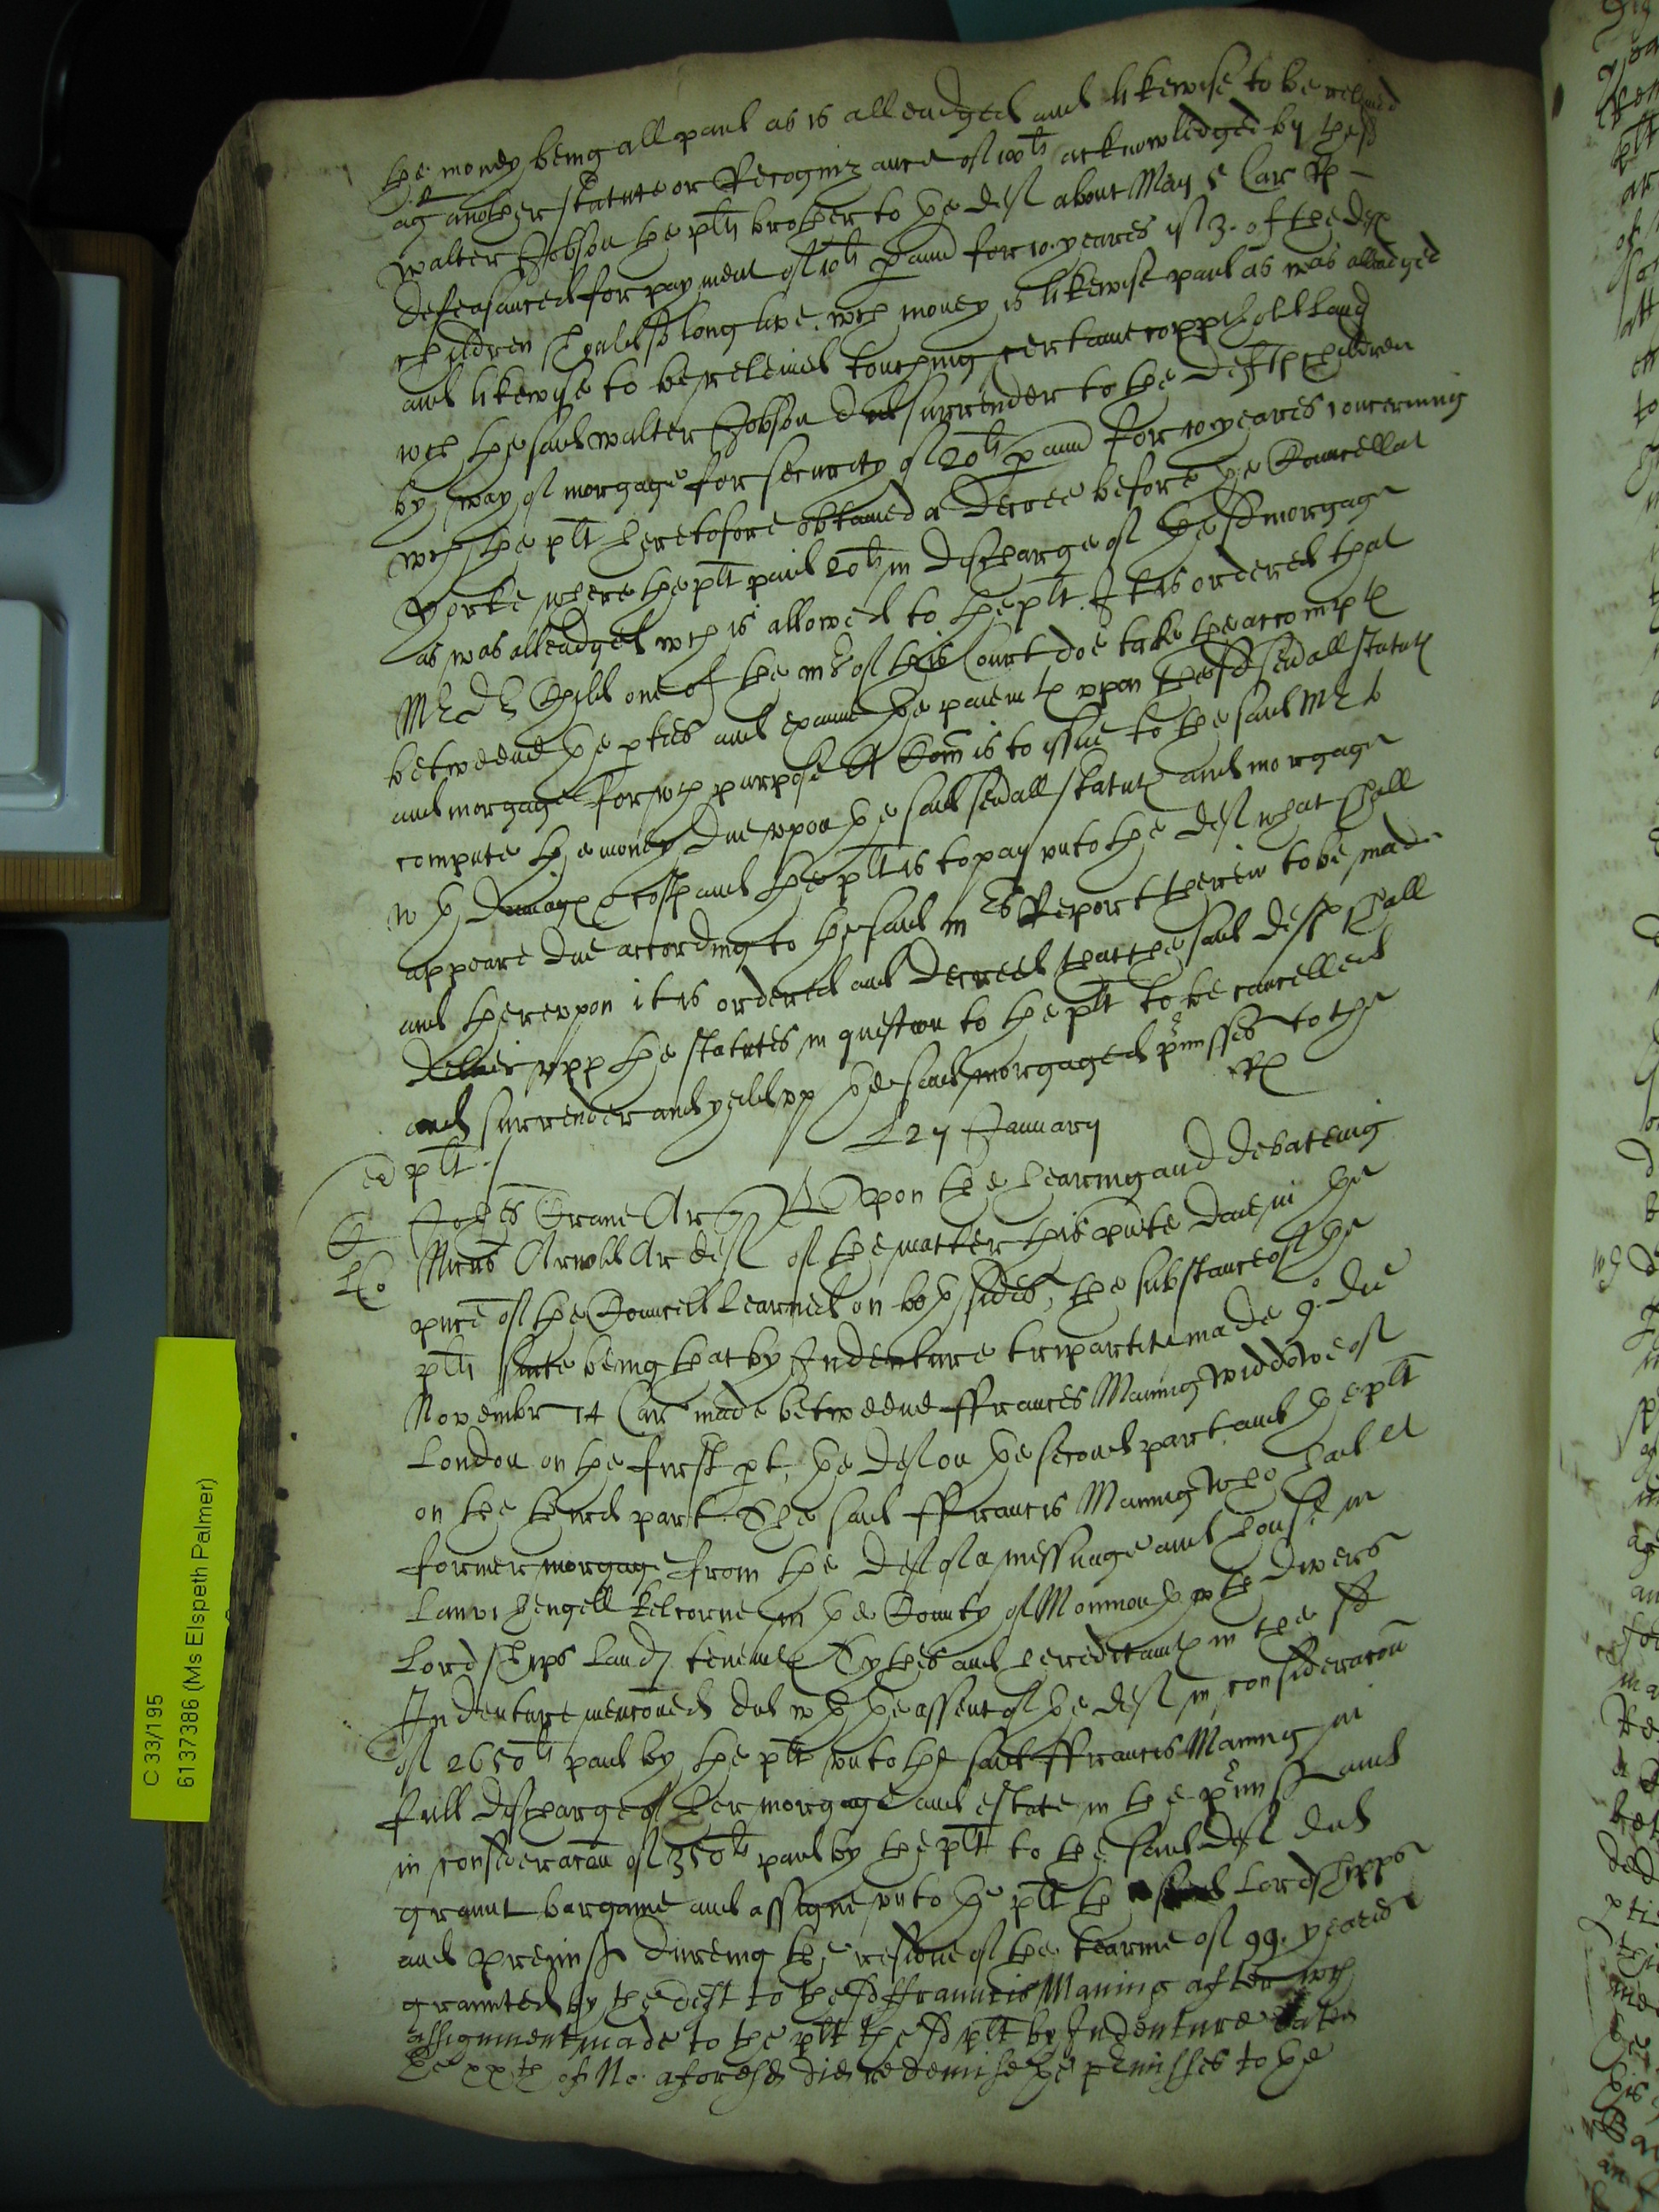 the money being all paid as is alleadged and likewise to be releived
ag another statute or Recogniz ance of 100li acknowledged by the sd
Walter Jobson the plts brother to the deft about May 5 Car R
defeasanced for payment of 10li p ann for 10 yeares if 3 of the defts
children should so long live wch money is likewise paid as was alleadged
and likewise to be releived touching certaine coppihold land
wch the said Walter Jobson did surrender to the defts children
by way of morgage for security of 20li p ann for 10 yeares concerning
wch the plt heretofore obtained a decree before the Councell at
Yorke where the plt paid 20li in discharge of the sd morgage
as was alleadged wch is allowed to the plt It is ordered that
Mr dr Child one of the mrs of this Court doe take the accompts
betweene the pties and examine the paiemts upon the sd sevall statuts
and morgage for wch purpose A Com is to issue to the said Mr to
compute the money due upon the said sevall statuts and morgage
wth damage & costs and the plt is to pay unto the deft what shall
appeare due according to the said mrs Report therein to be made
and thereupon it is ordered and decreed that the said defts shall
deliver upp the statutes in question to the plt to be cancelled
and surrender and yeild up the said morgaged prmisses to the
sd plt
L 27 January
Johes Crane Ar Upon the hearing and debateing
Nichus Arnold Ar deft of the matter this pnte daie in the
pnce of the Councell learned on both sides, the substance of the
plts suite being that by Indenture tripartite made 9o die
Novembr 14 Car made betweene ffrances Maning widdowe of
London on the first pt, the deft on the second part and the plt
on the third part. The said ffrancis Maning who had A
former morgage from the deft of a messuage and house in
Lanvihengell Kilcorne in the County of Monmouth wth divers
Lordshipps lands tenemts Tythes and hereditamts in the sd
Indenture mencōned did wth the assent of the deft in consideracōn
of 2650li paid by the plt unto the said ffrancis Maning in
full discharge of her morgage and estate in the prmisses and
in consideracōn of 350li paid by the plt to the said deft did
graunt bargaine and assigne unto the plt the said Lordshipps
and premisses dureing the residue of the tearme of 99. yeares
graunted by the deft to the sd ffrauncis Maning after wch
assignment made to the plt the sd plt by Indenture dated
the xxth of No. aforesd did redemise the prmisses to the
C 33/195
6137386 (Ms Elspeth Palmer)